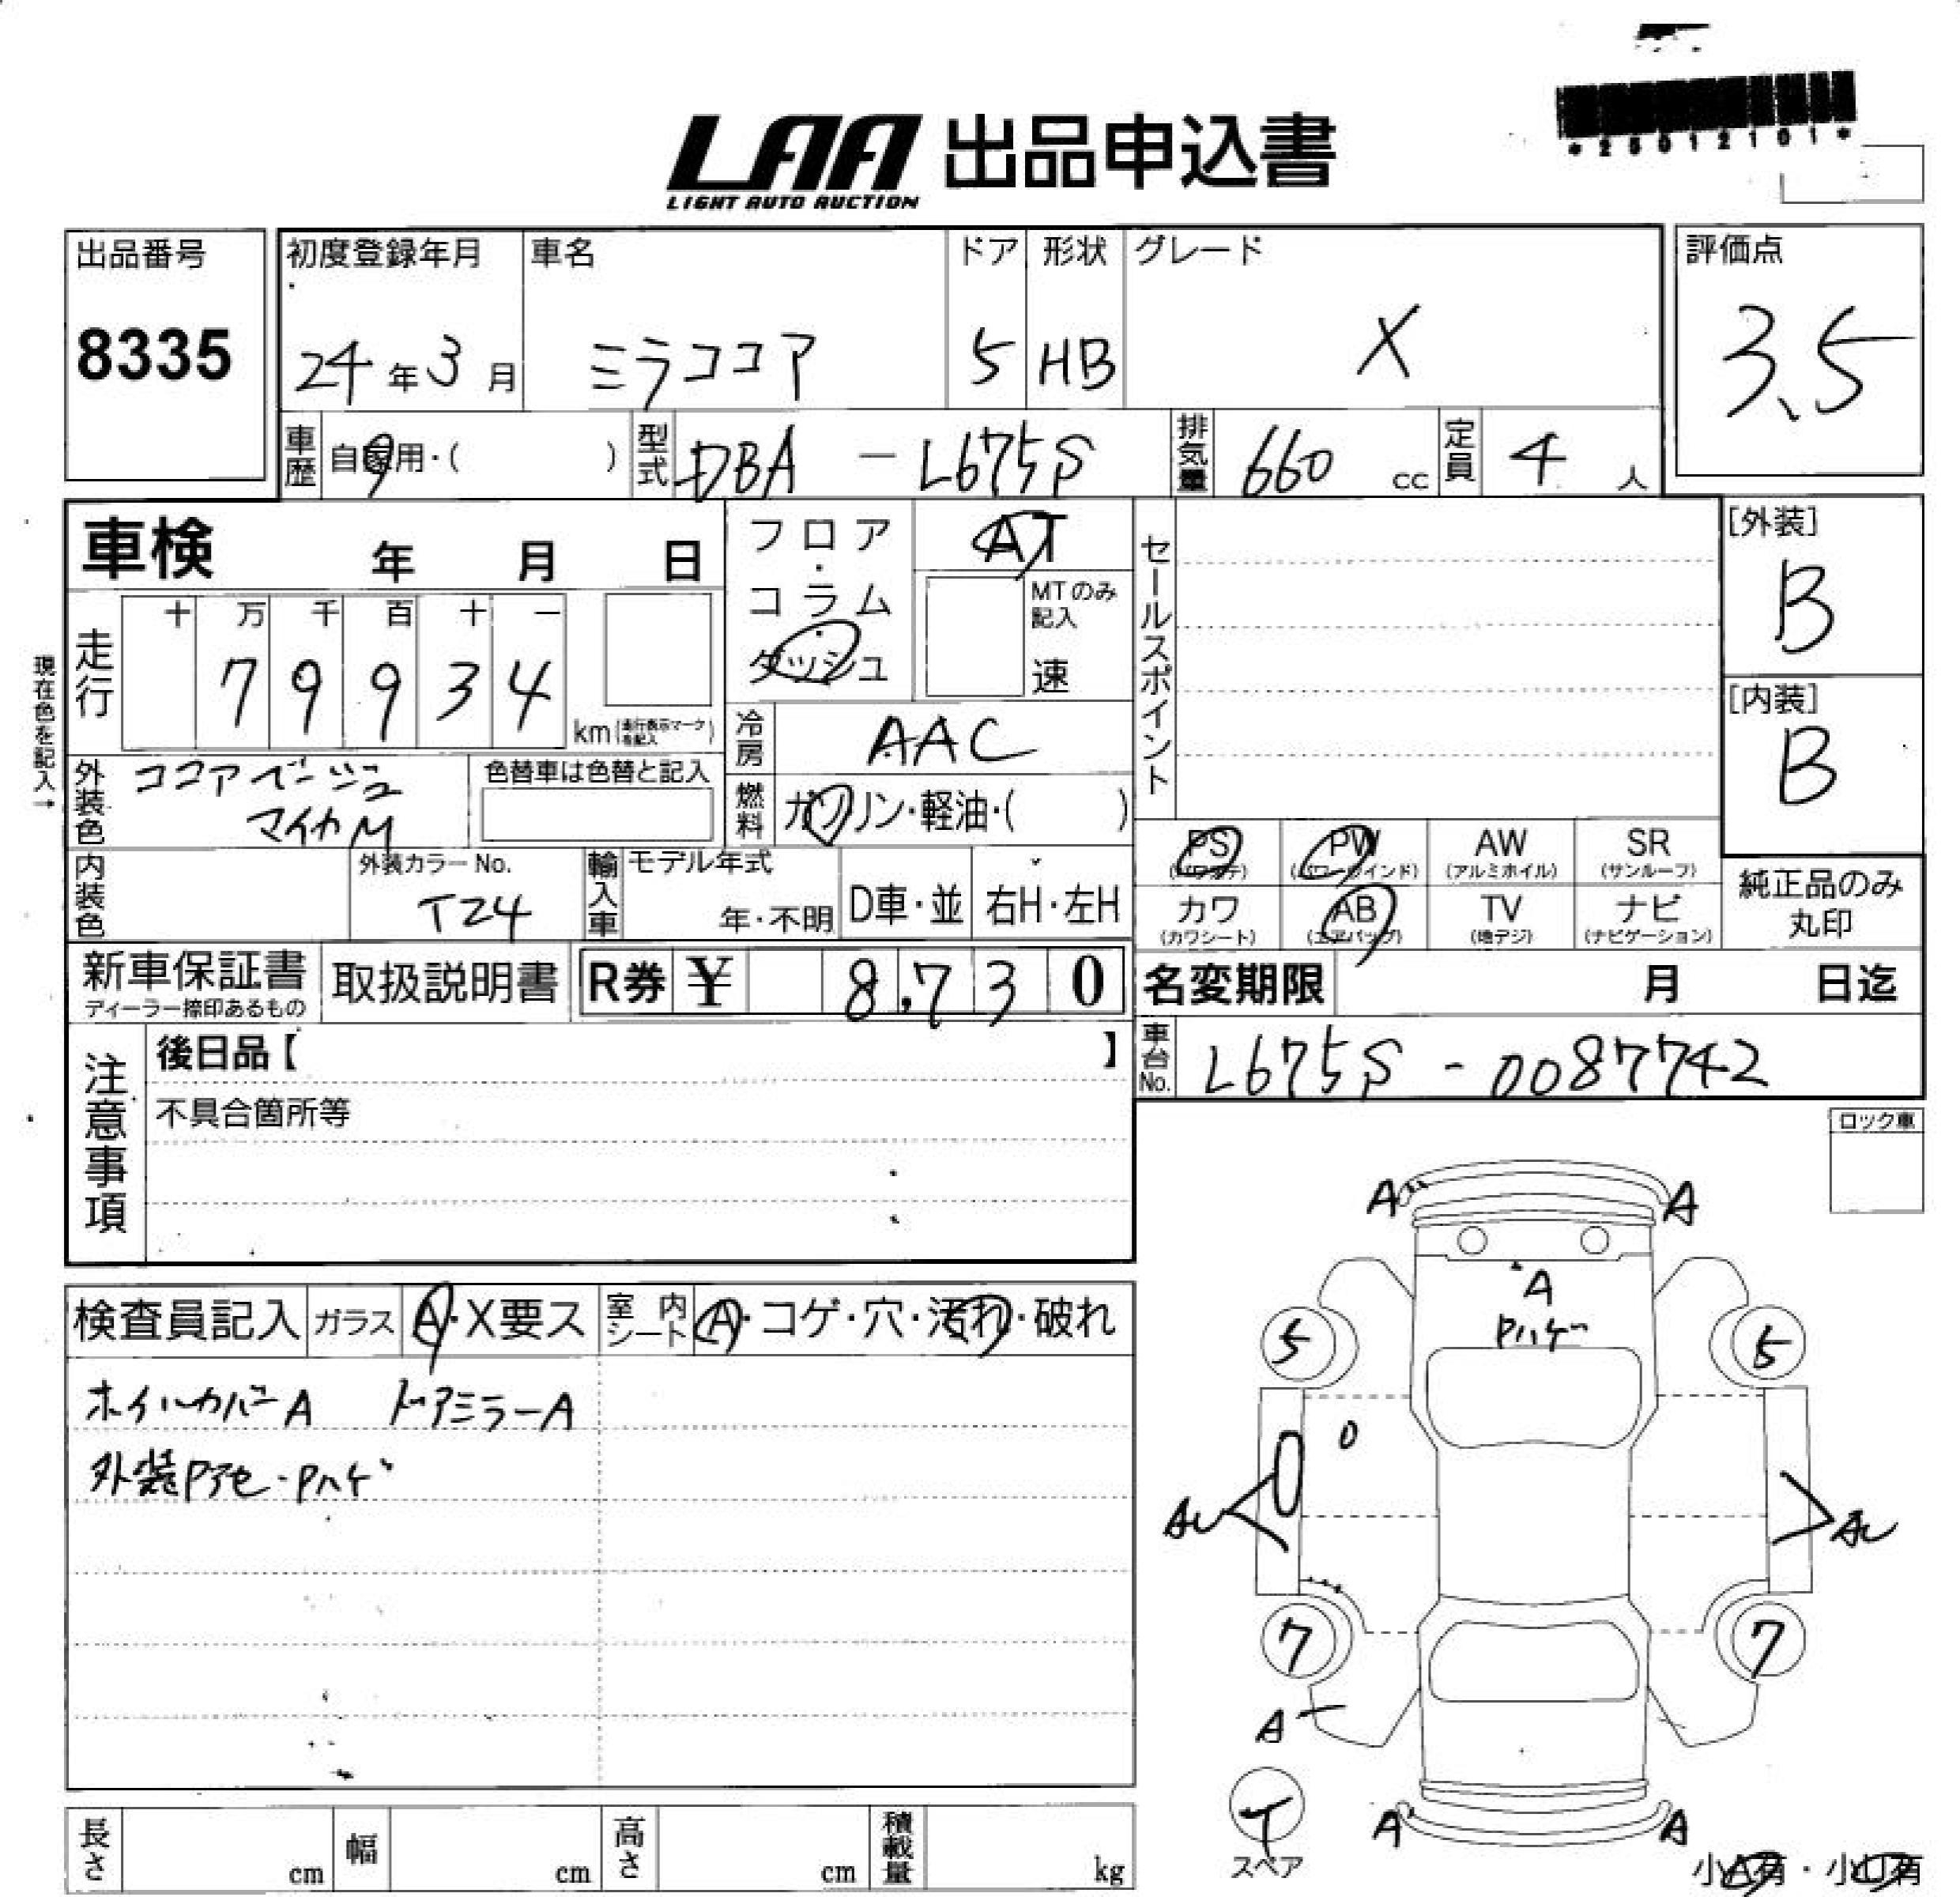 LAA 出品申込書
LIGHT AUTO AUCTION
*25012101*
出品番号
8335
初度登録年月
24年3月
車名
ミラココア
ドア
5
形状
HB
グレード
X
評価点
3.5
車歴 自家用・( )
型式 DBA - L675S
排気量 660 cc
定員 4 人
車検 年 月 日
フロア・コラム・ダッシュ
AT
MTのみ記入
速
セールスポイント
[外装]
B
[内装]
B
現在色を記入→
走行
十 万 千 百 十 一
7 9 9 3 4
km(走行表示マークを記入)
冷房 AAC
外装色 ココアベージュ
マイカM
色替車は色替と記入
燃料 ガソリン・軽油・( )
PS (パワステ)
PW (パワーウインド)
AW (アルミホイル)
SR (サンルーフ)
カワ (カワシート)
AB (エアバッグ)
TV (地デジ)
ナビ (ナビゲーション)
純正品のみ
丸印
内装色
外装カラーNo.
T24
輸入車
モデル年式
年・不明
D車・並
右H・左H
新車保証書
ディーラー捺印あるもの
取扱説明書
R券 ¥ 8,730
名変期限 月 日迄
注意事項
後日品【 】
不具合箇所等
車台No. L675S - 0087742
ロック車
検査員記入
ガラス A・X要ス
室内シート A・コゲ・穴・汚れ・破れ
ホイルカバーA ドアミラーA
外装Pアセ・Pハゲ
A A
A
Pハゲ
5 5
O
AU AU
7 7
A
T
スペア
A A
小A有・小U有
長さ cm
幅 cm
高さ cm
積載量 kg